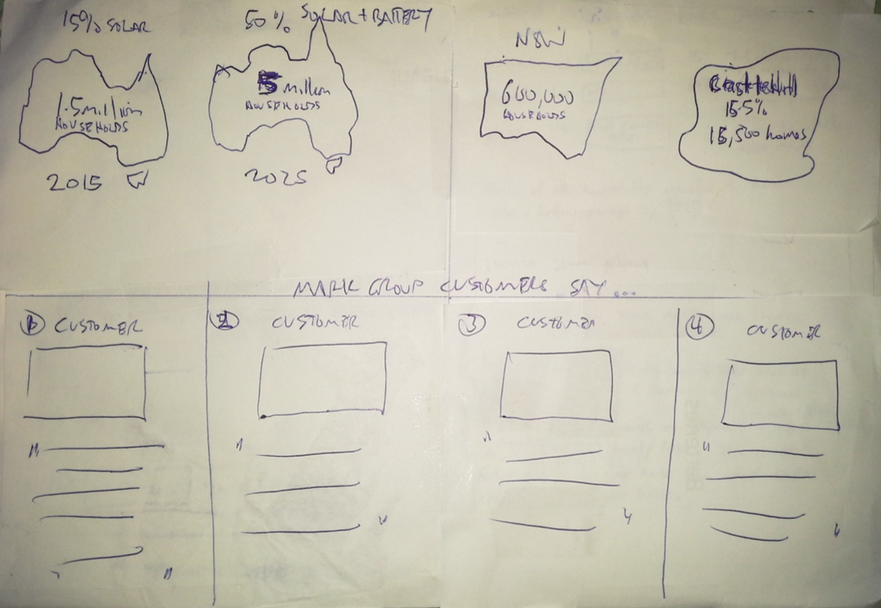 15% SOLAR
1.5 million
HOUSEHOLDS
2015
50% SOLAR + BATTERY
5 million
HOUSEHOLDS
2025
NSW
600,000
HOUSEHOLDS
15.5%
15,500 homes
MARK GROUP CUSTOMERS SAY...
1 CUSTOMER
2 CUSTOMER
3 CUSTOMER
4 CUSTOMER